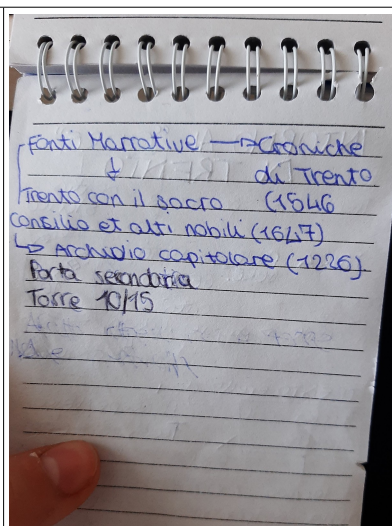 Fonti Narrative → Croniche
↓ di Trento
Trento con il sacro (1546
consilio et alti nobili (1647)
↳ Archivio capitolare (1226)
Porta secondaria
Torre 10/15